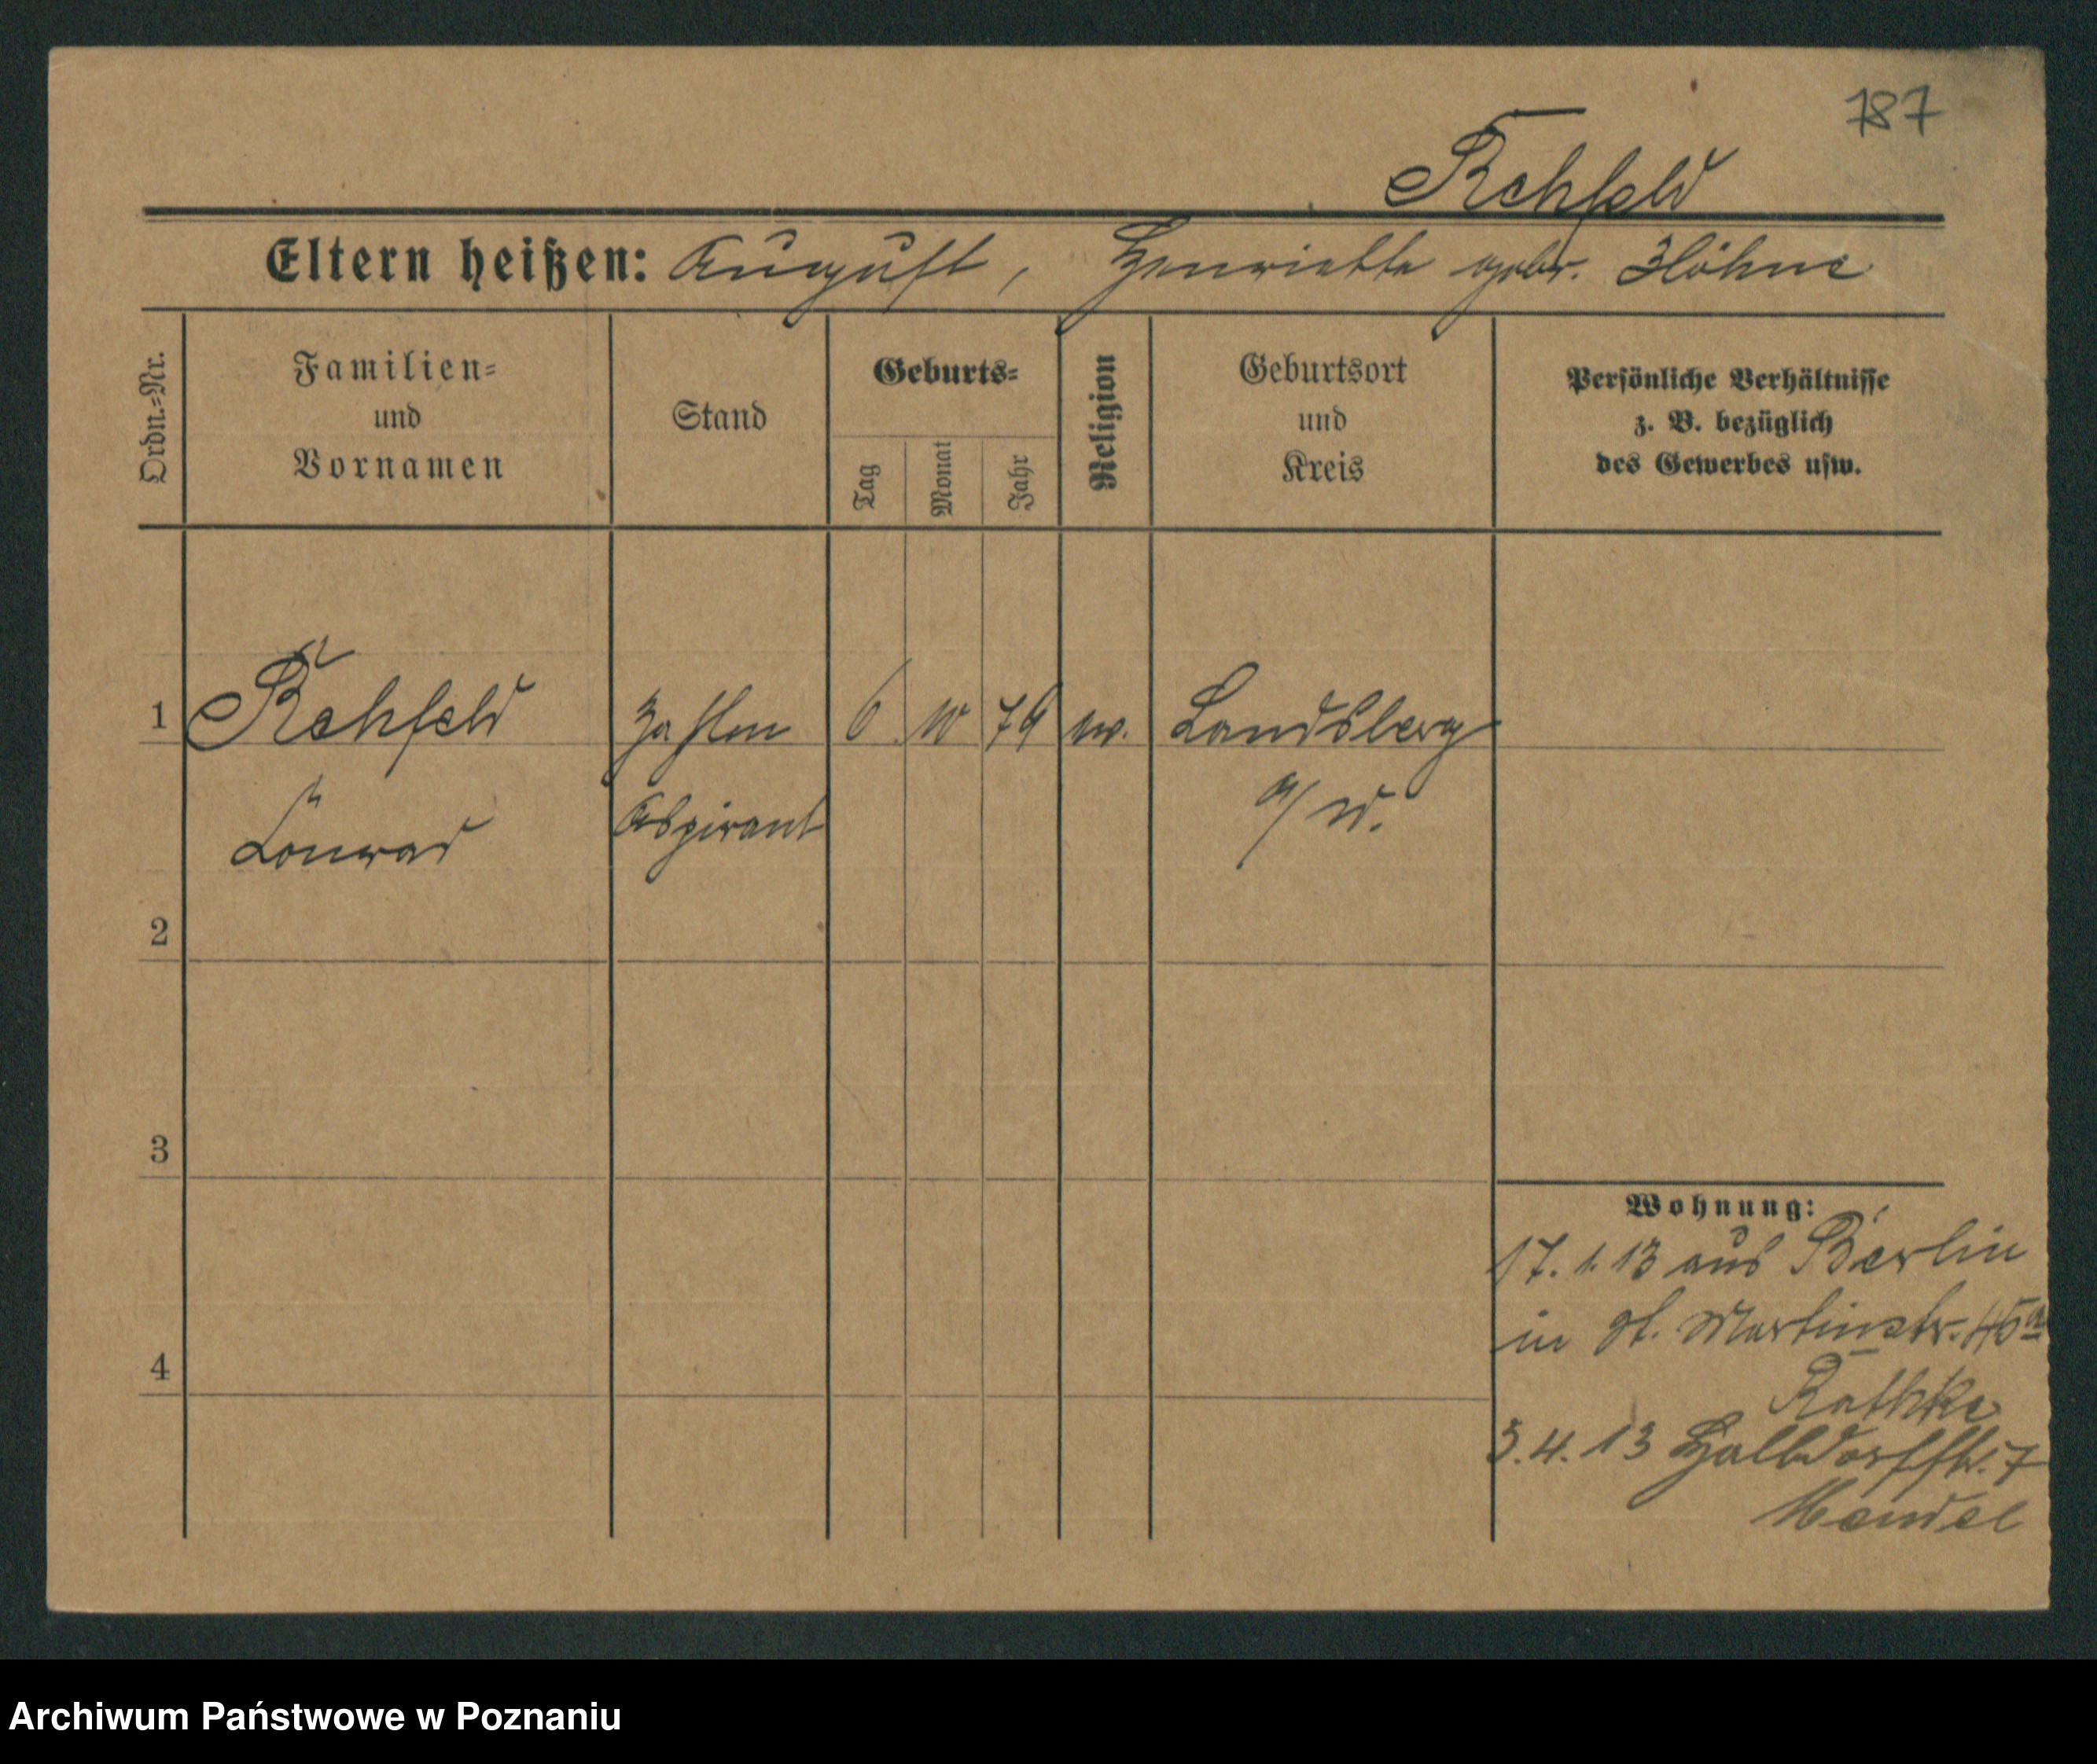 787
Rehfeld
Eltern heißen: August, Henriette gebor. Höhne
Ordn.=Nr.
Familien=
und
Vornamen
Stand
Geburts=
Tag
Monat
Jahr
Religion
Geburtsort
und
Kreis
Persönliche Verhältnisse
z. B. bezüglich
des Gewerbes usw.
1 Rehfeld 6 10 79 ev. Landsberg
Conrad Aspirant a/W.
2
3
4
Wohnung:
17.1.13 aus Berlin
in St. Martinstr. 45a
Rathke
3.4.13 Halbdorfstr. 7
Mendel
Archiwum Państwowe w Poznaniu